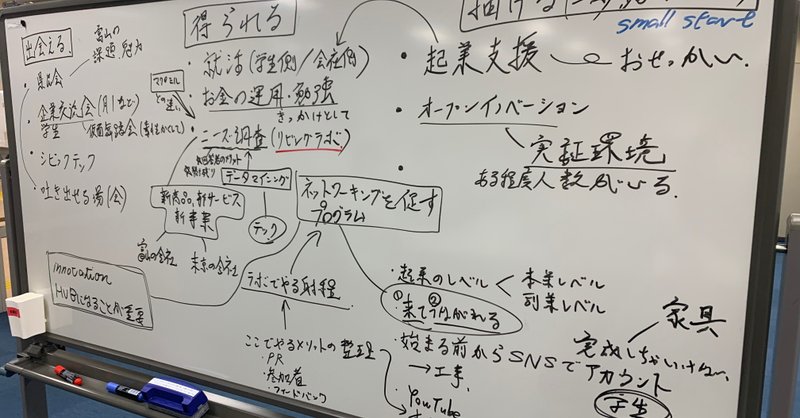 出会える
富山の
課題・魅力
・県人会
・企業交流会(月1など)
学生
・仮面舞踏会
・シビックテック
・吐き出せる場(会)
得られる
・就活(学生側/会社側)
・お金の運用・勉強
きっかけとして
・ニーズ調査(リビングラボ)
データマイニング
テック
新商品、新サービス
新事業
富山の会社
東京の会社
innovation
HUBになることが重要
ネットワーキングを促す
プログラム
ラボでやる射程
ここでやるメリットの整理
・PR
・参加者
・フィードバック
small start
・起業支援
おせっかい
・オープンイノベーション
実証環境
ある程度人数がいる。
・起業のレベル
本業レベル
副業レベル
①来て②つながれる
・始まる前からSNSで
アカウント
→工事
YouTube
家具
完成しちゃいけない
学生